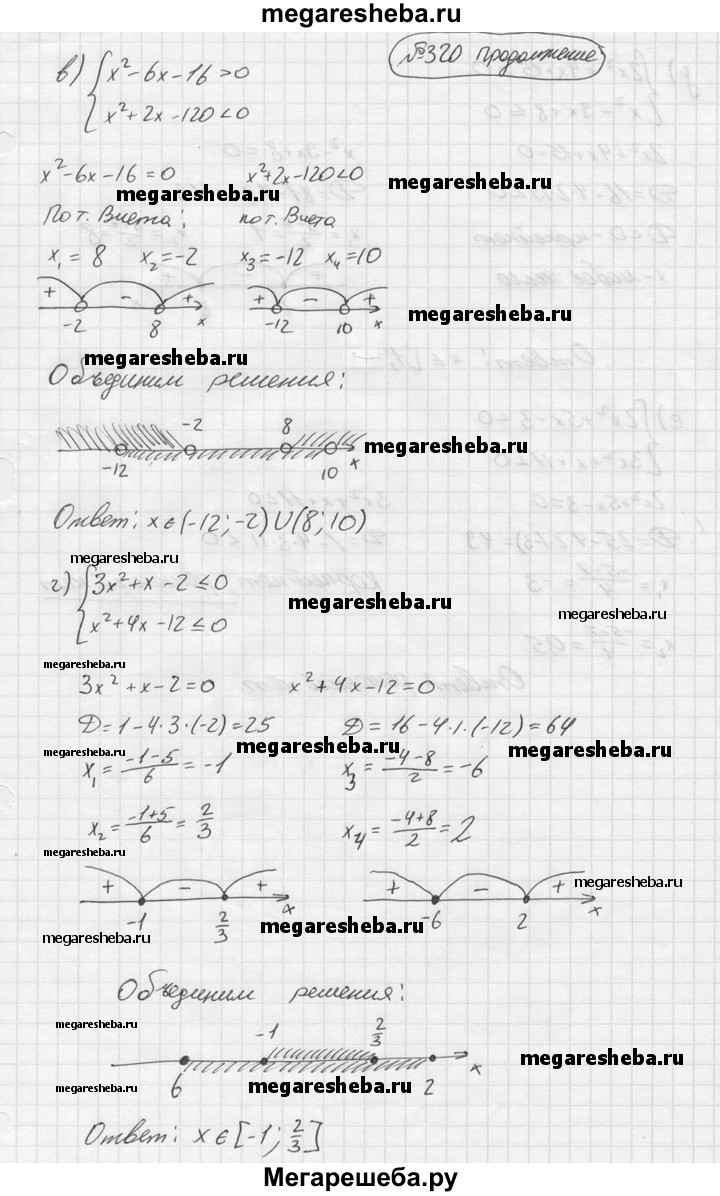 megaresheba.ru
№320 продолжение
в) { x² - 6x - 16 > 0
x² + 2x - 120 < 0
x² - 6x - 16 = 0 x² + 2x - 120 < 0
megaresheba.ru megaresheba.ru
По т. Виета: по т. Виета
x₁ = 8 x₂ = -2 x₃ = -12 x₄ = 10
+ - + + - +
-2 8 x -12 10 x
megaresheba.ru
megaresheba.ru
Объединим решения:
-2 8
megaresheba.ru
-12 10 x
Ответ: x ∈ (-12; -2) U (8; 10)
megaresheba.ru
г) { 3x² + x - 2 ≤ 0
megaresheba.ru
megaresheba.ru
x² + 4x - 12 ≤ 0
megaresheba.ru
3x² + x - 2 = 0 x² + 4x - 12 = 0
D = 1 - 4·3·(-2) = 25 D = 16 - 4·1·(-12) = 64
megaresheba.ru megaresheba.ru megaresheba.ru
x₁ = (-1-5)/6 = -1 x₃ = (-4-8)/2 = -6
x₂ = (-1+5)/6 = 2/3 x₄ = (-4+8)/2 = 2
megaresheba.ru
+ - + + - megaresheba.ru
-1 2/3 x -6 2 x
megaresheba.ru megaresheba.ru
Объединим решения:
megaresheba.ru
-1 2/3
megaresheba.ru
6 2 x
megaresheba.ru megaresheba.ru
Ответ: x ∈ [-1; 2/3]
Мегарешеба.ру